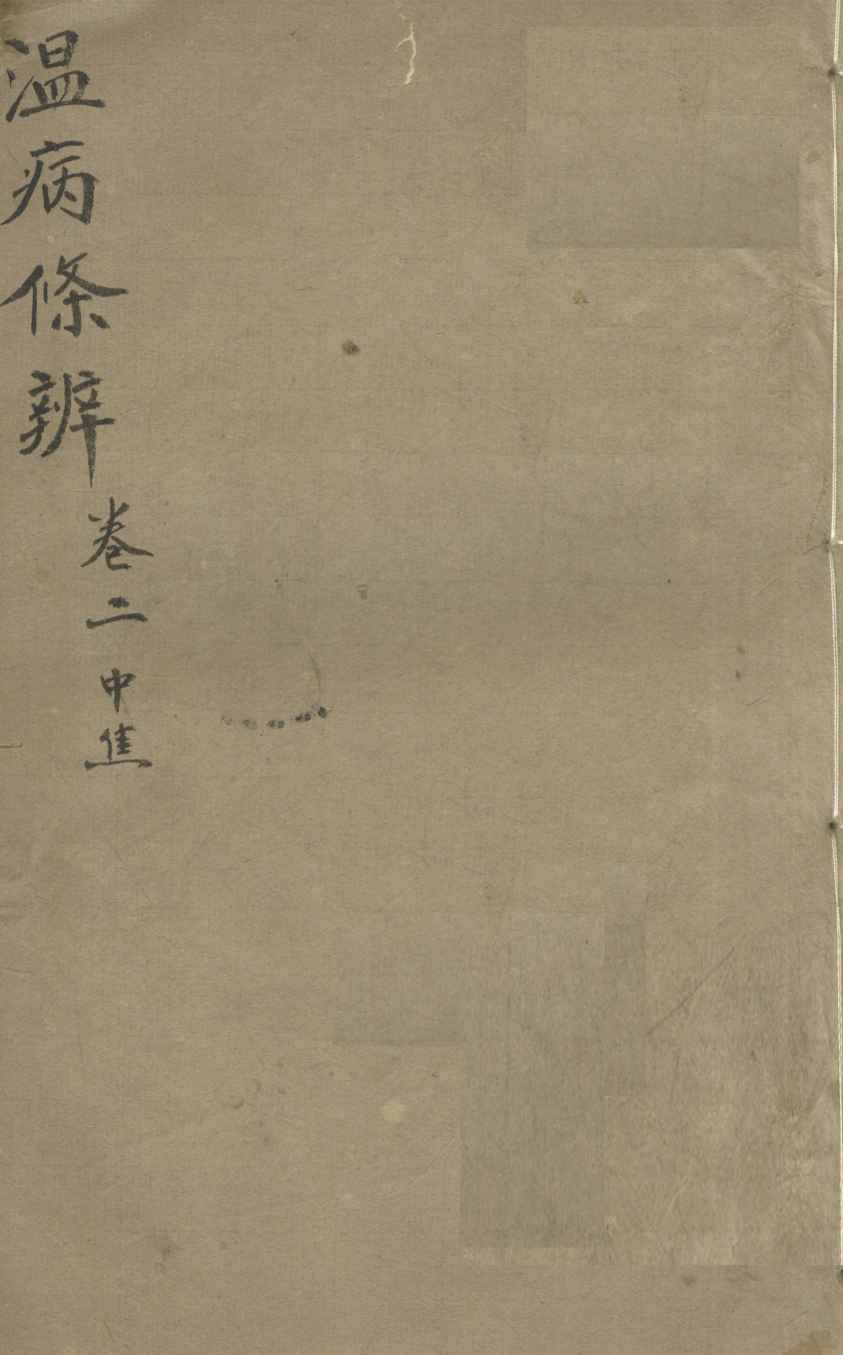 温病條辨
卷二 中焦